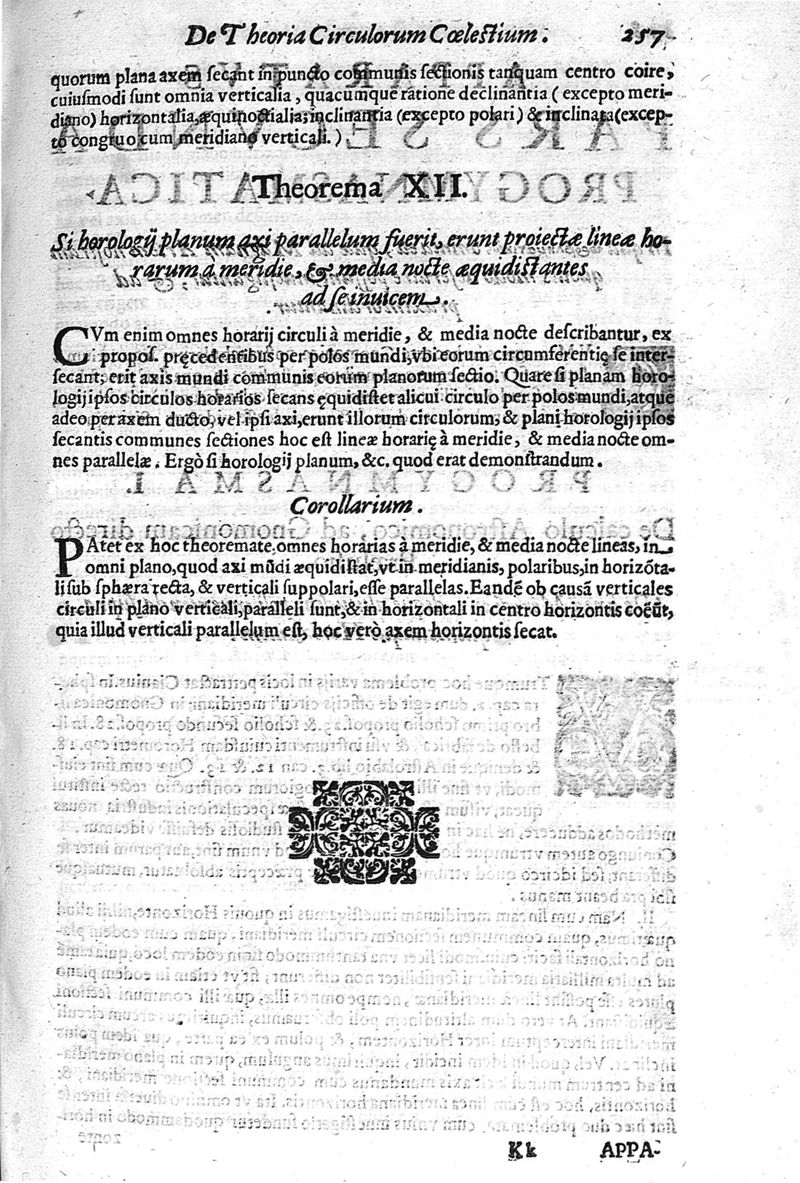 De Theoria Circulorum Cœlestium. 257
quorum plana axem secant in puncto communis sectionis tanquam centro coire,
cuiusmodi sunt omnia verticalia, quacumque ratione declinantia (excepto meri-
diano) horizontalia, æquinoctialia; inclinantia (excepto polari) & inclinata (excep-
to congruo cum meridiano verticali.)
Theorema XII.
Si horologij planum axi parallelum fuerit, erunt proiectæ lineæ ho-
rarum à meridie, & media nocte æquidistantes
ad se inuicem.
CVm enim omnes horarij circuli à meridie, & media nocte describantur, ex
propos. pręcedentibus per polos mundi, vbi eorum circumferentię se inter-
secant; erit axis mundi communis eorum planorum sectio. Quare si planum horo-
logij ipsos circulos horarios secans ęquidistet alicui circulo per polos mundi, atque
adeo per axem ducto, vel ipsi axi, erunt illorum circulorum, & plani horologij ipsos
secantis communes sectiones hoc est lineæ horarię à meridie, & media nocte om-
nes parallelæ. Ergò si horologij planum, &c. quod erat demonstrandum.
Corollarium.
PAtet ex hoc theoremate, omnes horarias à meridie, & media nocte lineas, in
omni plano, quod axi mūdi æquidistat, vt in meridianis, polaribus, in horizōta-
li sub sphæra recta, & verticali suppolari, esse parallelas. Eandē ob causā verticales
circuli in plano verticali, paralleli sunt, & in horizontali in centro horizontis coëūt,
quia illud verticali parallelum est, hoc verò axem horizontis secat.
Kk APPA-